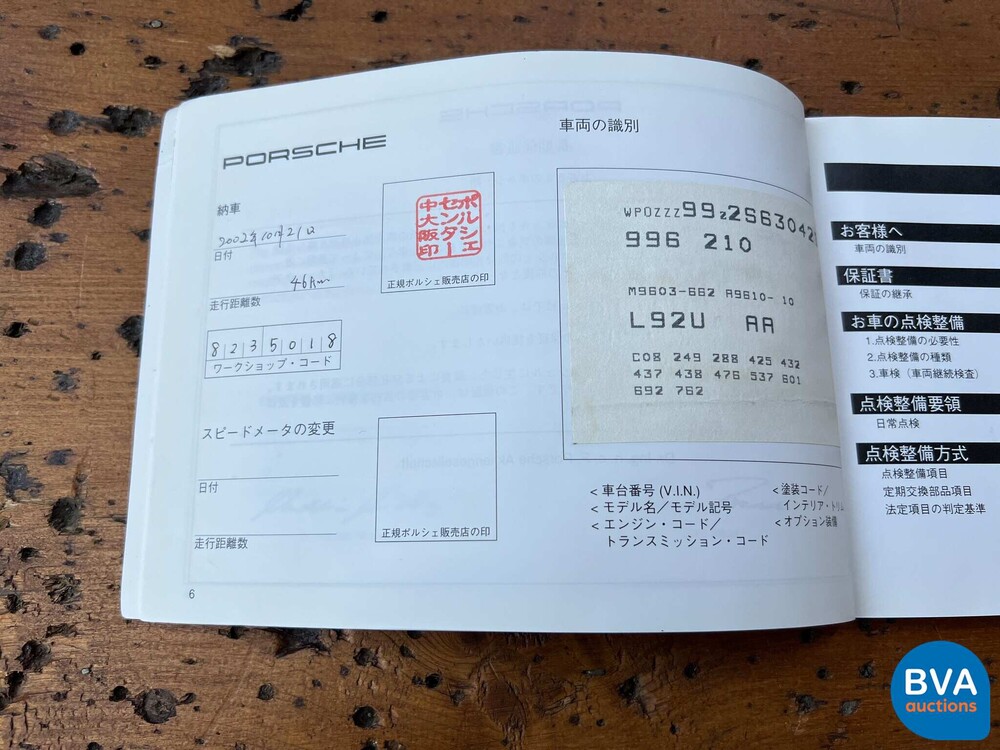 PORSCHE
納車
2002年10月21日
日付
46km
走行距離数
8 2 3 5 0 1 8
ワークショップ・コード
ポルシェ
センター
中大阪印
正規ポルシェ販売店の印
スピードメータの変更
日付
走行距離数
正規ポルシェ販売店の印
6
車両の識別
WPOZZZ99z2S63042
996 210
M9603-662 A9610- 10
L92U AA
C08 249 288 425 432
437 438 476 537 601
692 762
< 車台番号 (V.I.N.)
< モデル名／モデル記号
< エンジン・コード／
トランスミッション・コード
< 塗装コード／
インテリア・トリム
< オプション装備
お客様へ
車両の識別
保証書
保証の継承
お車の点検整備
1.点検整備の必要性
2.点検整備の種類
3.車検（車両継続検査）
点検整備要領
日常点検
点検整備方式
点検整備項目
定期交換部品項目
法定項目の判定基準
BVA
auctions